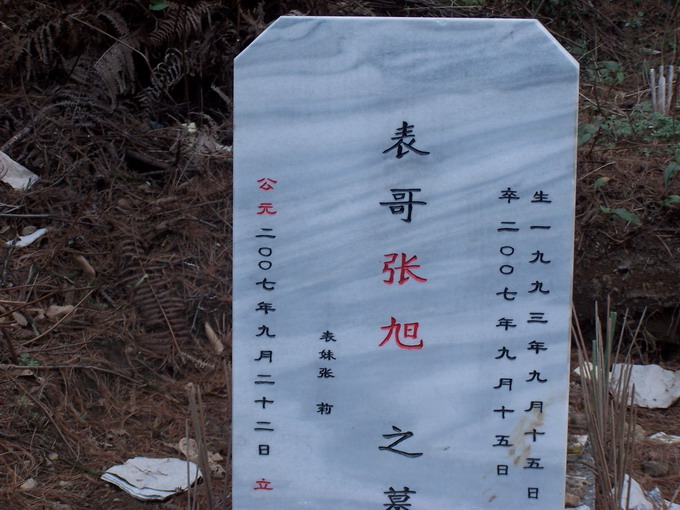 生一九九三年九月十五日
卒二〇〇七年九月十五日
表哥张旭之墓
表妹张莉
公元二〇〇七年九月二十二日立